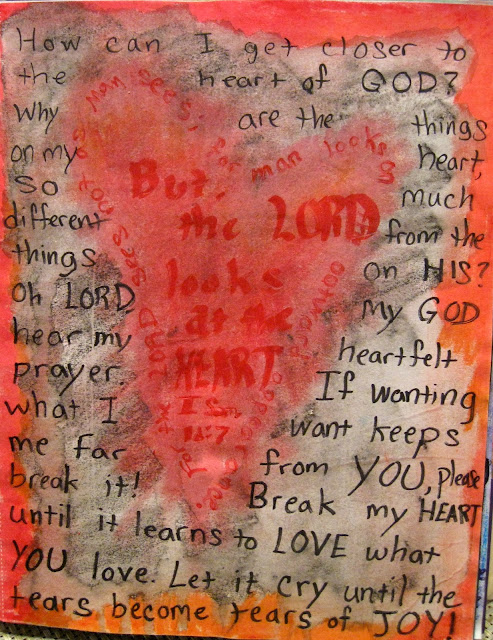 How can I get closer to
the heart of GOD?
Why are the things
on my heart,
so much
different from the
things on HIS?
Oh LORD my GOD
hear my heartfelt
prayer. If wanting
what I want keeps
me far from YOU, please
break it! Break my HEART
until it learns to LOVE what
YOU love. Let it cry until the
tears become tears of JOY!
LORD sees not as man sees; for man looks outward appearance.
But,
the LORD
looks
at the
HEART
I Sm.
16:7